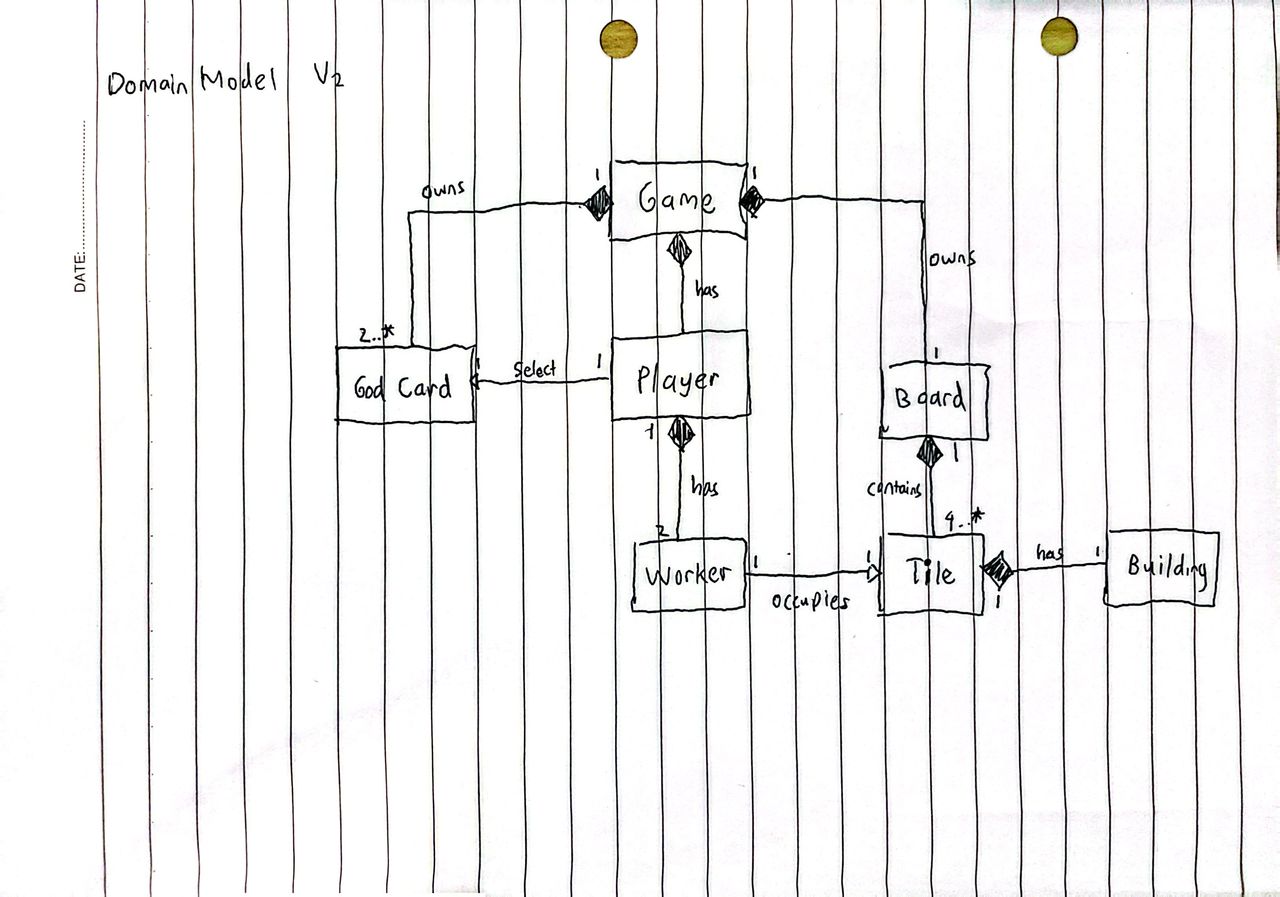 Domain Model V2
DATE:
1
Game
1
owns
owns
has
2..*
1
God Card
1
Select
1
Player
Board
1
1
has
contains
2
4..*
Worker
1
occupies
1
Tile
1
has
1
Building